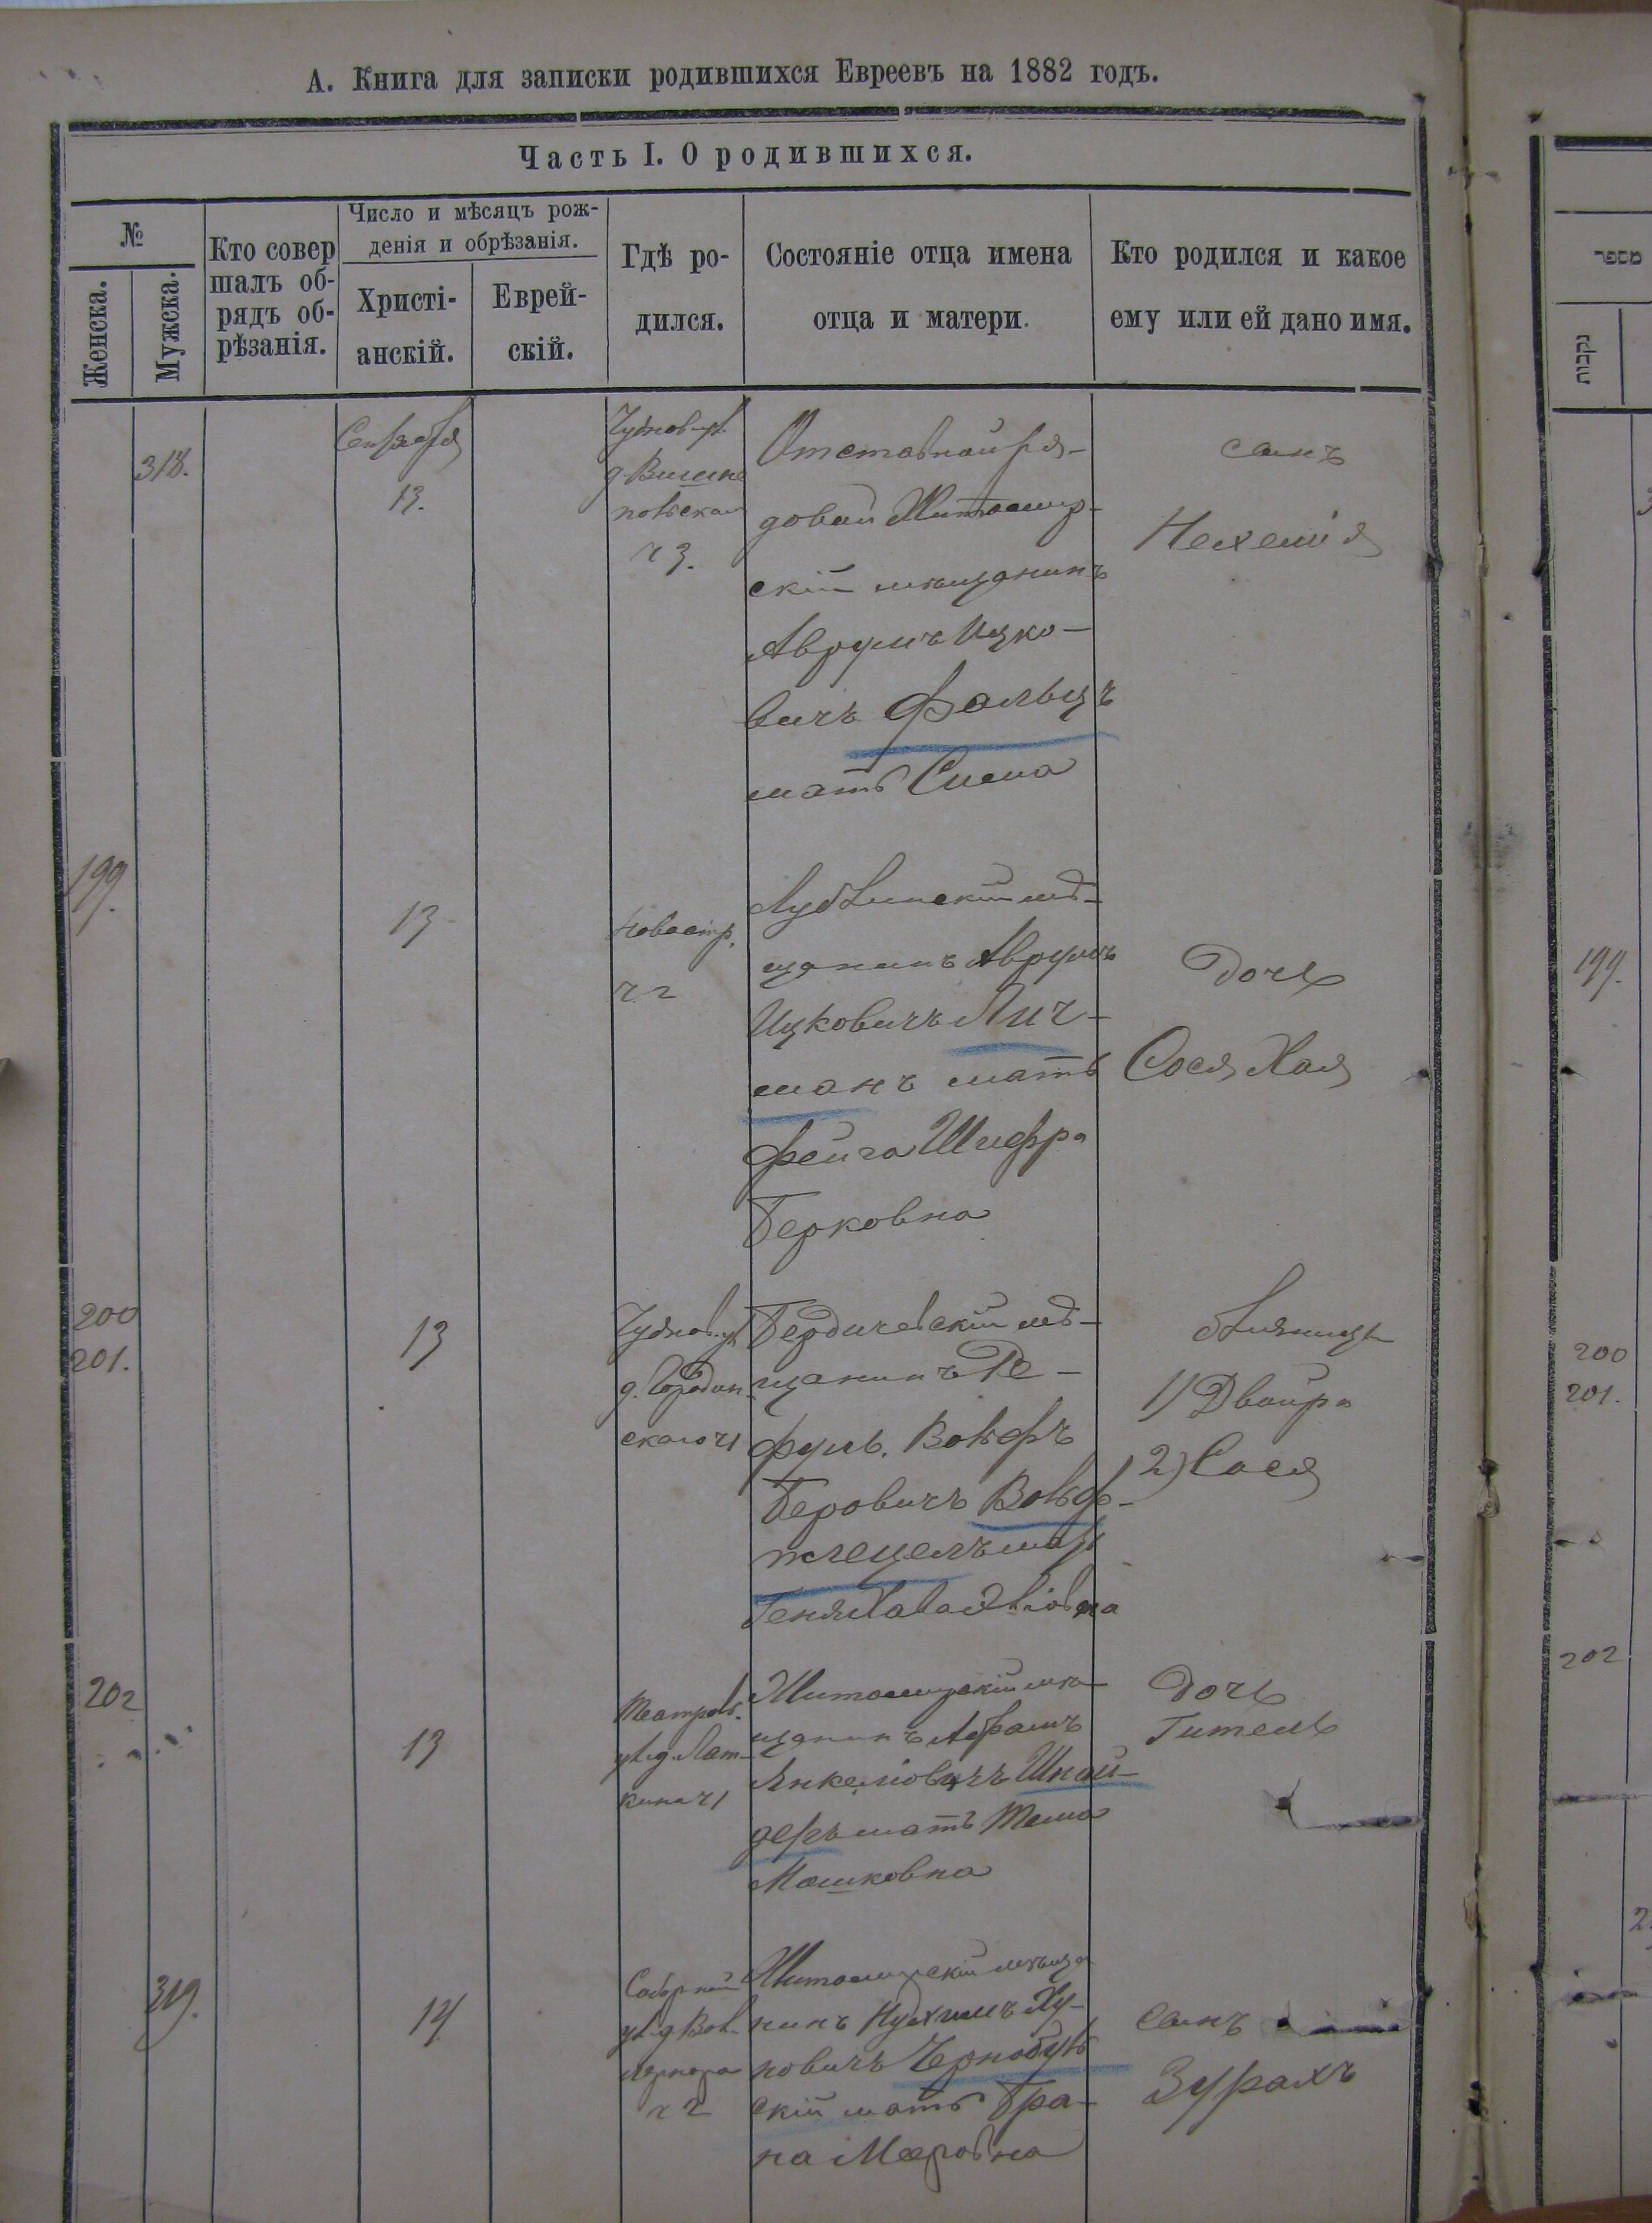 А. Книга для записки родившихся Евреевъ на 1882 годъ.
Часть I. О родившихся.
№
Женска.
Мужска.
Кто совер
шалъ об-
рядъ об-
рѣзанія.
Число и мѣсяцъ рож-
денія и обрѣзанія.
Христі-
анскій.
Еврей-
скій.
Гдѣ ро-
дился.
Состояніе отца имена
отца и матери.
Кто родился и какое
ему или ей дано имя.
מספר
נקבות
318.
Сентября
13.
ч 3.
Отставной ря-
довой Житомир-
скій мѣщанинъ
Аврумъ Ицко-
вичъ Фальцъ
мать Сима
сынъ
Нехемія
199.
13
Новостр.
ч 2
мѣ-
щанинъ Аврумъ
Ицковичъ Лич-
манъ мать
Фейга Шифра
Берковна
Дочь
Сося Хая
199.
200
201.
13
Чуднов. ул
д. Городин
скаго ч 1
Бердичевскій мѣ-
щанинъ Ре-
фулъ. Вольфъ
Беровичъ Вольф-
мать
Геня
близнецы
1) Двойра
2) Сося
200
201.
202
13
Театров.
ул. д. Лат-
кина ч 1
Житомирскій мѣ-
щанинъ Абрамъ
Янкеліовичъ Шнай-
деръ мать Тема
Мошковна
Дочь
Гитель
202
319.
14
Соборной
ул. д. Вол-
ч 2
Житомирскій мѣща
нинъ Нухимъ Ху-
новичъ Чернобуль
скій мать Бра-
на Меровна
Сынъ
Зурахъ